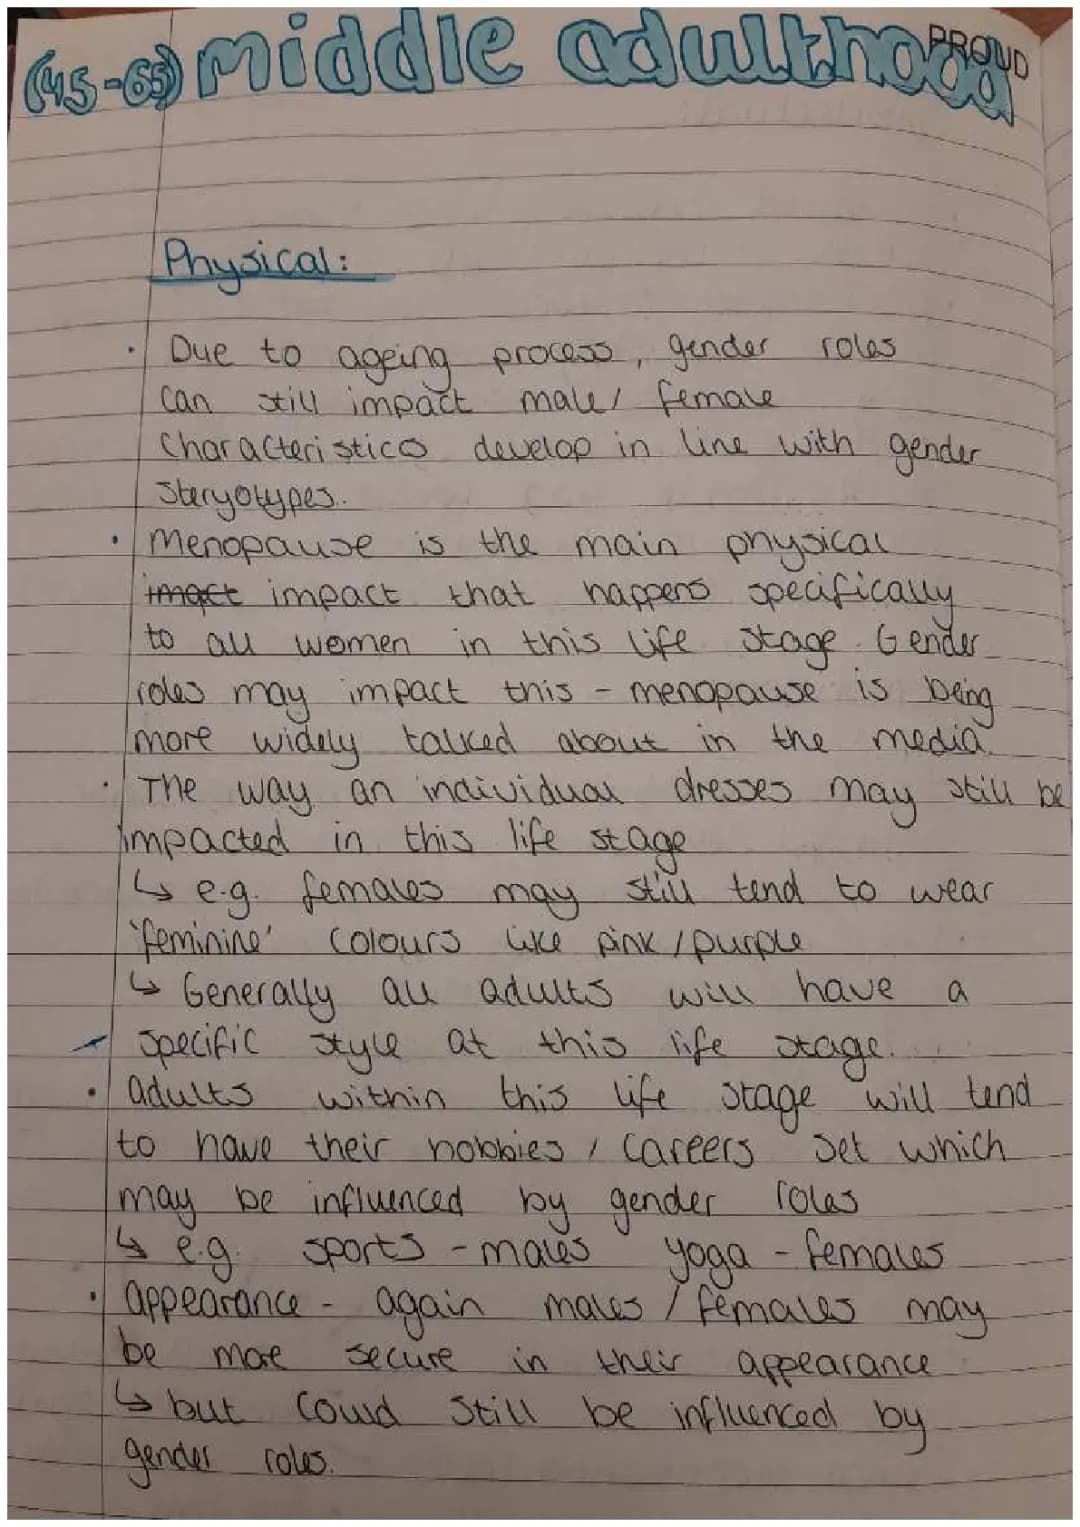 (45-65) middle adulthood
PROUD
Physical:
· Due to ageing process, gender roles
can still impact male/ female
characteristics develop in line with gender
steryotypes.
· Menopause is the main physical
imact impact that happens specifically
to all women in this life stage. Gender
roles may impact this - menopause is being
more widely talked about in the media.
· The way an individual dresses may still be
impacted in this life stage
↳ e.g. females may still tend to wear
'feminine' colours like pink / purple
↳ Generally all adults will have a
specific style at this life stage.
· adults within this life stage will tend
to have their hobbies / careers set which
may be influenced by gender roles
↳ e.g. sports - males yoga - females
· appearance - again males / females may
be more secure in their appearance
↳ but could still be influenced by
gender roles.